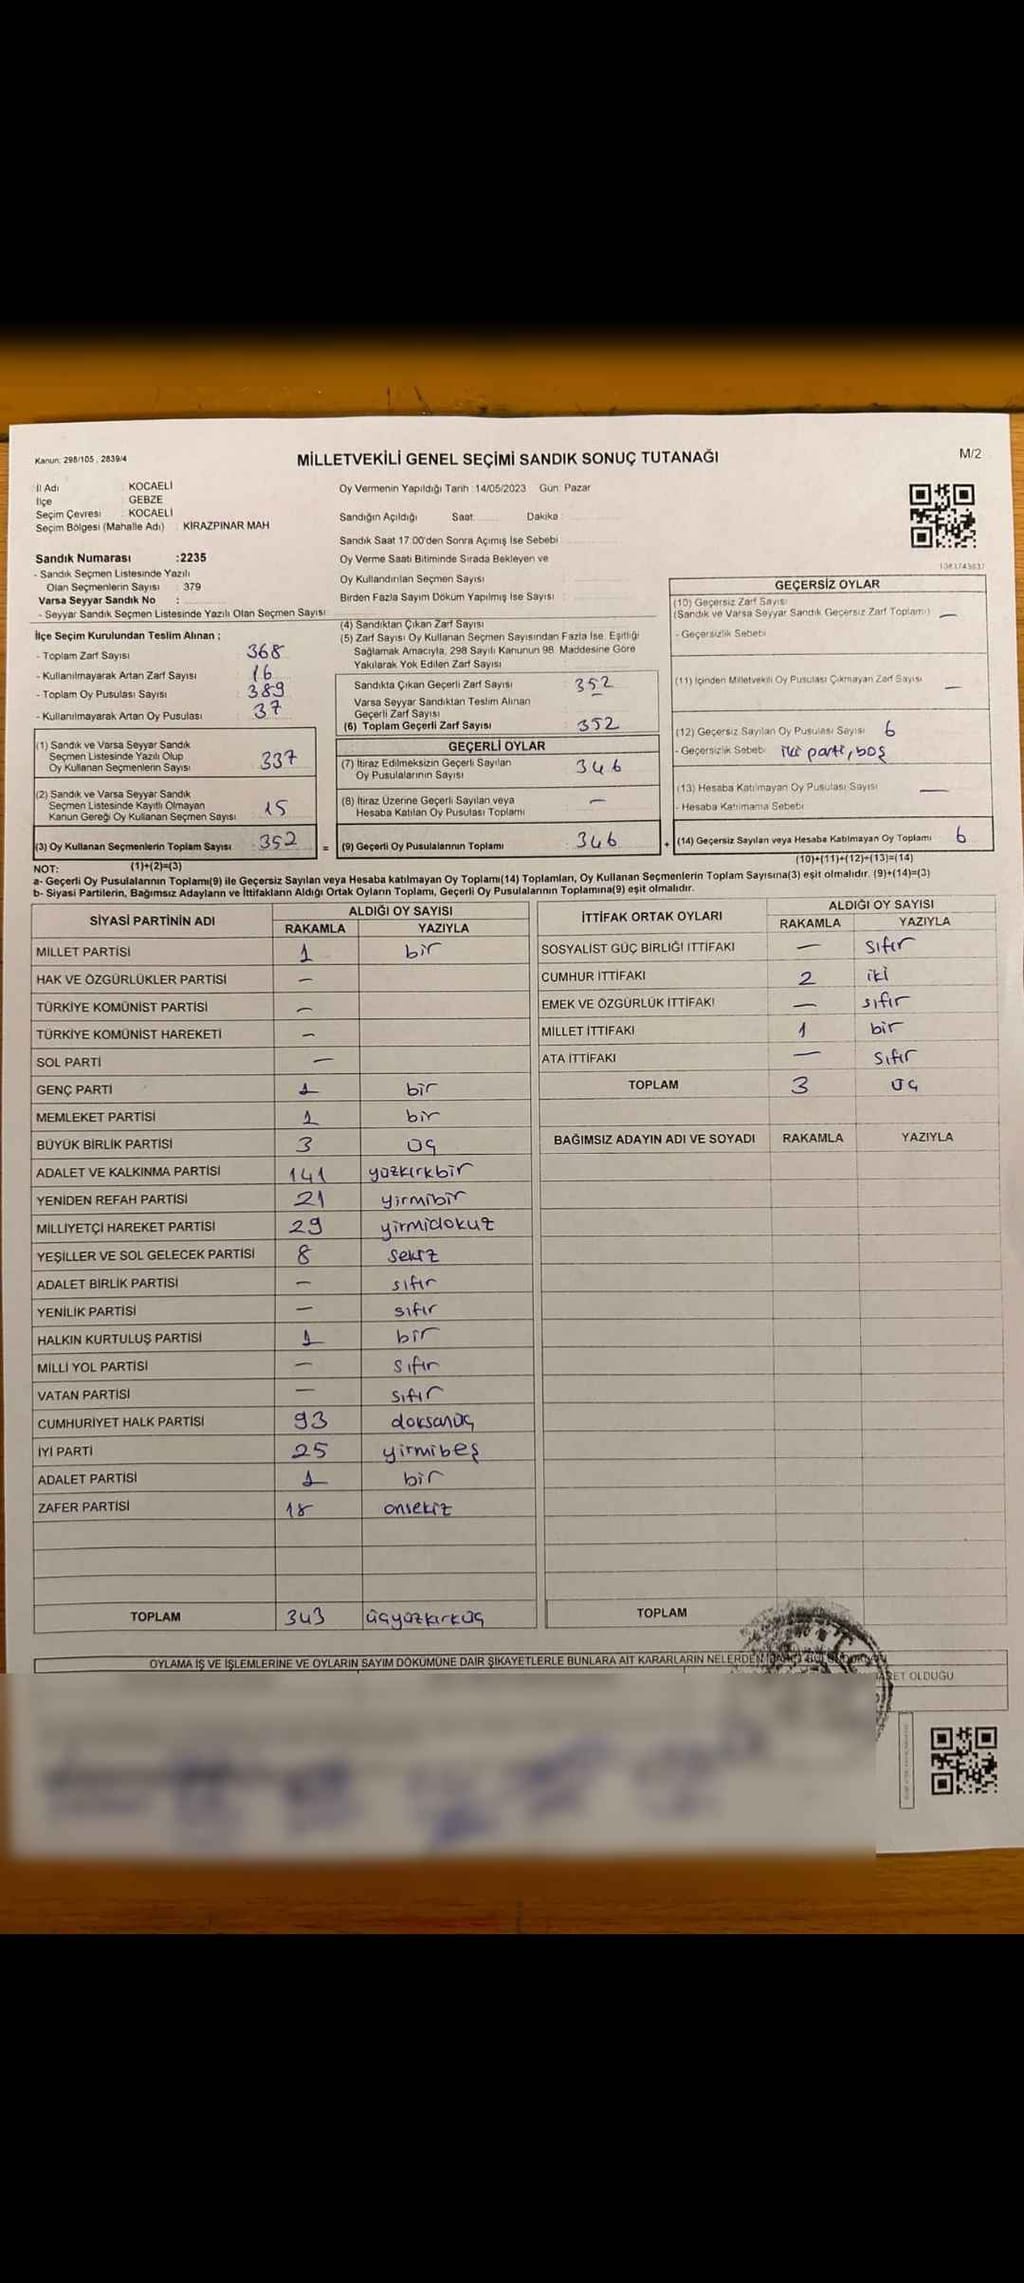 Kanun: 298/105 , 2839/4
MİLLETVEKİLİ GENEL SEÇİMİ SANDIK SONUÇ TUTANAĞI
M/2
İl Adı : KOCAELİ
İlçe : GEBZE
Seçim Çevresi : KOCAELİ
Seçim Bölgesi (Mahalle Adı) : KİRAZPINAR MAH
Sandık Numarası :2235
- Sandık Seçmen Listesinde Yazılı
Olan Seçmenlerin Sayısı : 379
Varsa Seyyar Sandık No :
- Seyyar Sandık Seçmen Listesinde Yazılı Olan Seçmen Sayısı
Oy Vermenin Yapıldığı Tarih :14/05/2023 Gün: Pazar
Sandığın Açıldığı Saat: Dakika :
Sandık Saat 17.00'den Sonra Açımış İse Sebebi
Oy Verme Saati Bitiminde Sırada Bekleyen ve
Oy Kullandırılan Seçmen Sayısı :
Birden Fazla Sayım Döküm Yapılmış İse Sayısı :
1083743037
İlçe Seçim Kurulundan Teslim Alınan ;
- Toplam Zarf Sayısı 368
- Kullanılmayarak Artan Zarf Sayısı 16
- Toplam Oy Pusulası Sayısı 389
- Kullanılmayarak Artan Oy Pusulası 37
(1) Sandık ve Varsa Seyyar Sandık
Seçmen Listesinde Yazılı Olup
Oy Kullanan Seçmenlerin Sayısı 337
(2) Sandık ve Varsa Seyyar Sandık
Seçmen Listesinde Kayıtlı Olmayan
Kanun Gereği Oy Kullanan Seçmen Sayısı 15
(3) Oy Kullanan Seçmenlerin Toplam Sayısı : 352 =
(4) Sandıktan Çıkan Zarf Sayısı
(5) Zarf Sayısı Oy Kullanan Seçmen Sayısından Fazla İse, Eşitliği
Sağlamak Amacıyla, 298 Sayılı Kanunun 98. Maddesine Göre
Yakılarak Yok Edilen Zarf Sayısı
Sandıkta Çıkan Geçerli Zarf Sayısı : 352
Varsa Seyyar Sandıktan Teslim Alınan
Geçerli Zarf Sayısı
(6) Toplam Geçerli Zarf Sayısı : 352
GEÇERLİ OYLAR
(7) İtiraz Edilmeksizin Geçerli Sayılan
Oy Pusulalarının Sayısı 346
(8) İtiraz Üzerine Geçerli Sayılan veya
Hesaba Katılan Oy Pusulası Toplamı : —
(9) Geçerli Oy Pusulalarının Toplamı : 346 +
GEÇERSİZ OYLAR
(10) Geçersiz Zarf Sayısı
(Sandık ve Varsa Seyyar Sandık Geçersiz Zarf Toplamı) —
- Geçersizlik Sebebi
(11) İçinden Milletvekili Oy Pusulası Çıkmayan Zarf Sayısı —
(12) Geçersiz Sayılan Oy Pusulası Sayısı 6
- Geçersizlik Sebebi iki parti, boş
(13) Hesaba Katılmayan Oy Pusulası Sayısı —
- Hesaba Katılmama Sebebi
(14) Geçersiz Sayılan veya Hesaba Katılmayan Oy Toplamı 6
NOT: (1)+(2)=(3)
(10)+(11)+(12)+(13)=(14)
a- Geçerli Oy Pusulalarının Toplamı(9) ile Geçersiz Sayılan veya Hesaba katılmayan Oy Toplamı(14) Toplamları, Oy Kullanan Seçmenlerin Toplam Sayısına(3) eşit olmalıdır. (9)+(14)=(3)
b- Siyasi Partilerin, Bağımsız Adayların ve İttifakların Aldığı Ortak Oyların Toplamı, Geçerli Oy Pusulalarının Toplamına(9) eşit olmalıdır.
SİYASİ PARTİNİN ADI ALDIĞI OY SAYISI
RAKAMLA YAZIYLA
MİLLET PARTİSİ 1 bir
HAK VE ÖZGÜRLÜKLER PARTİSİ —
TÜRKİYE KOMÜNİST PARTİSİ —
TÜRKİYE KOMÜNİST HAREKETİ —
SOL PARTİ —
GENÇ PARTİ 1 bir
MEMLEKET PARTİSİ 1 bir
BÜYÜK BİRLİK PARTİSİ 3 üç
ADALET VE KALKINMA PARTİSİ 141 yüzkırkbir
YENİDEN REFAH PARTİSİ 21 yirmibir
MİLLİYETÇİ HAREKET PARTİSİ 29 yirmidokuz
YEŞİLLER VE SOL GELECEK PARTİSİ 8 sekiz
ADALET BİRLİK PARTİSİ — sıfır
YENİLİK PARTİSİ — sıfır
HALKIN KURTULUŞ PARTİSİ 1 bir
MİLLİ YOL PARTİSİ — sıfır
VATAN PARTİSİ — sıfır
CUMHURİYET HALK PARTİSİ 93 doksanüç
İYİ PARTİ 25 yirmibeş
ADALET PARTİSİ 1 bir
ZAFER PARTİSİ 18 onsekiz
TOPLAM 343 üçyüzkırküç
İTTİFAK ORTAK OYLARI ALDIĞI OY SAYISI
RAKAMLA YAZIYLA
SOSYALİST GÜÇ BİRLİĞİ İTTİFAKI — sıfır
CUMHUR İTTİFAKI 2 iki
EMEK VE ÖZGÜRLÜK İTTİFAKI — sıfır
MİLLET İTTİFAKI 1 bir
ATA İTTİFAKI — sıfır
TOPLAM 3 üç
BAĞIMSIZ ADAYIN ADI VE SOYADI RAKAMLA YAZIYLA
TOPLAM
OYLAMA İŞ VE İŞLEMLERİNE VE OYLARIN SAYIM DÖKÜMÜNE DAİR ŞİKAYETLERLE BUNLARA AİT KARARLARIN NELERDEN
OLDUĞU